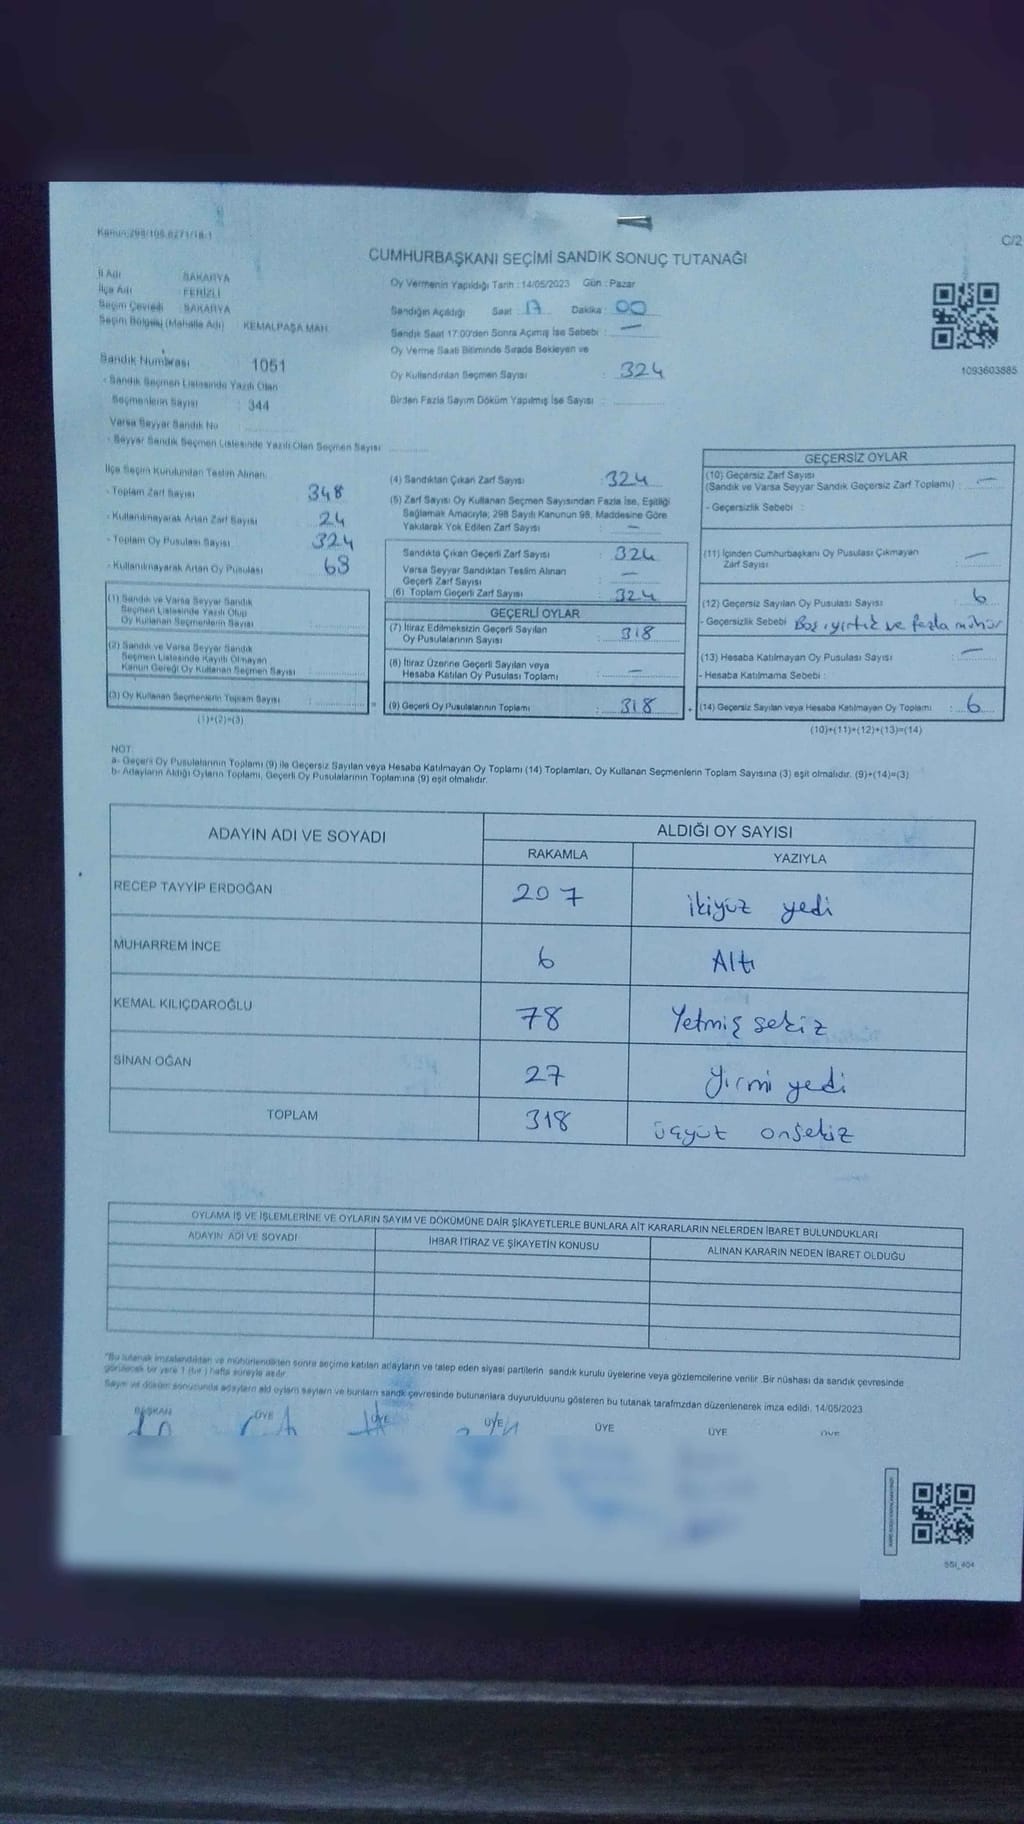 Kanun:298/105,6271/18-1
C/2
CUMHURBAŞKANI SEÇİMİ SANDIK SONUÇ TUTANAĞI
İl Adı SAKARYA
İlçe Adı FERİZLİ
Seçim Çevresi SAKARYA
Seçim Bölgesi (Mahalle Adı) KEMALPAŞA MAH.
Sandık Numarası 1051
- Sandık Seçmen Listesinde Yazılı Olan
Seçmenlerin Sayısı : 344
Varsa Seyyar Sandık No
- Seyyar Sandık Seçmen Listesinde Yazılı Olan Seçmen Sayısı
Oy Vermenin Yapıldığı Tarih : 14/05/2023 Gün : Pazar
Sandığın Açıldığı Saat : 17 Dakika : 00
Sandık Saat 17:00'den Sonra Açılmış İse Sebebi : —
Oy Verme Saati Bitiminde Sırada Bekleyen ve
Oy Kullandırılan Seçmen Sayısı : 324
Birden Fazla Sayım Döküm Yapılmış İse Sayısı :
1093603885
İlçe Seçim Kurulundan Teslim Alınan:
- Toplam Zarf Sayısı 348
- Kullanılmayarak Artan Zarf Sayısı 24
- Toplam Oy Pusulası Sayısı 324
- Kullanılmayarak Artan Oy Pusulası 68
(1) Sandık ve Varsa Seyyar Sandık
Seçmen Listesinde Yazılı Olup
Oy Kullanan Seçmenlerin Sayısı :
(2) Sandık ve Varsa Seyyar Sandık
Seçmen Listesinde Kayıtlı Olmayan
Kanun Gereği Oy Kullanan Seçmen Sayısı :
(3) Oy Kullanan Seçmenlerin Toplam Sayısı :
(1)+(2)=(3)
(4) Sandıktan Çıkan Zarf Sayısı : 324
(5) Zarf Sayısı Oy Kullanan Seçmen Sayısından Fazla İse, Eşitliği
Sağlamak Amacıyla; 298 Sayılı Kanunun 98. Maddesine Göre
Yakılarak Yok Edilen Zarf Sayısı : —
Sandıkta Çıkan Geçerli Zarf Sayısı : 324
Varsa Seyyar Sandıktan Teslim Alınan
Geçerli Zarf Sayısı : —
(6) Toplam Geçerli Zarf Sayısı : 324
GEÇERLİ OYLAR
(7) İtiraz Edilmeksizin Geçerli Sayılan
Oy Pusulalarının Sayısı : 318
(8) İtiraz Üzerine Geçerli Sayılan veya
Hesaba Katılan Oy Pusulası Toplamı : —
(9) Geçerli Oy Pusulalarının Toplamı : 318
GEÇERSİZ OYLAR
(10) Geçersiz Zarf Sayısı
(Sandık ve Varsa Seyyar Sandık Geçersiz Zarf Toplamı) : —
- Geçersizlik Sebebi :
(11) İçinden Cumhurbaşkanı Oy Pusulası Çıkmayan
Zarf Sayısı : —
(12) Geçersiz Sayılan Oy Pusulası Sayısı : 6
- Geçersizlik Sebebi Boş yırtık ve fazla mühür
(13) Hesaba Katılmayan Oy Pusulası Sayısı : —
- Hesaba Katılmama Sebebi :
(14) Geçersiz Sayılan veya Hesaba Katılmayan Oy Toplamı : 6
(10)+(11)+(12)+(13)=(14)
NOT:
a- Geçerli Oy Pusulalarının Toplamı (9) ile Geçersiz Sayılan veya Hesaba Katılmayan Oy Toplamı (14) Toplamları, Oy Kullanan Seçmenlerin Toplam Sayısına (3) eşit olmalıdır. (9)+(14)=(3)
b- Adayların Aldığı Oyların Toplamı, Geçerli Oy Pusulalarının Toplamına (9) eşit olmalıdır.
ADAYIN ADI VE SOYADI ALDIĞI OY SAYISI
RAKAMLA YAZIYLA
RECEP TAYYİP ERDOĞAN 207 ikiyüz yedi
MUHARREM İNCE 6 Altı
KEMAL KILIÇDAROĞLU 78 Yetmiş sekiz
SİNAN OĞAN 27 Yirmi yedi
TOPLAM 318 üçyüz onsekiz
OYLAMA İŞ VE İŞLEMLERİNE VE OYLARIN SAYIM VE DÖKÜMÜNE DAİR ŞİKAYETLERLE BUNLARA AİT KARARLARIN NELERDEN İBARET BULUNDUKLARI
ADAYIN ADI VE SOYADI İHBAR İTİRAZ VE ŞİKAYETİN KONUSU ALINAN KARARIN NEDEN İBARET OLDUĞU
*Bu tutanak imzalandıktan ve mühürlendikten sonra seçime katılan adayların ve talep eden siyasi partilerin sandık kurulu üyelerine veya gözlemcilerine verilir. Bir nüshası da sandık çevresinde
görülecek bir yere 1 (bir) hafta süreyle asılır.
Sayım ve döküm sonucunda adayların ald oyların sayların ve bunların sandk çevresinde bulunanlara duyurulduunu gösteren bu tutanak tarafmzdan düzenlenerek imza edildi. 14/05/2023
BAŞKAN ÜYE ÜYE ÜYE ÜYE ÜYE ÜYE